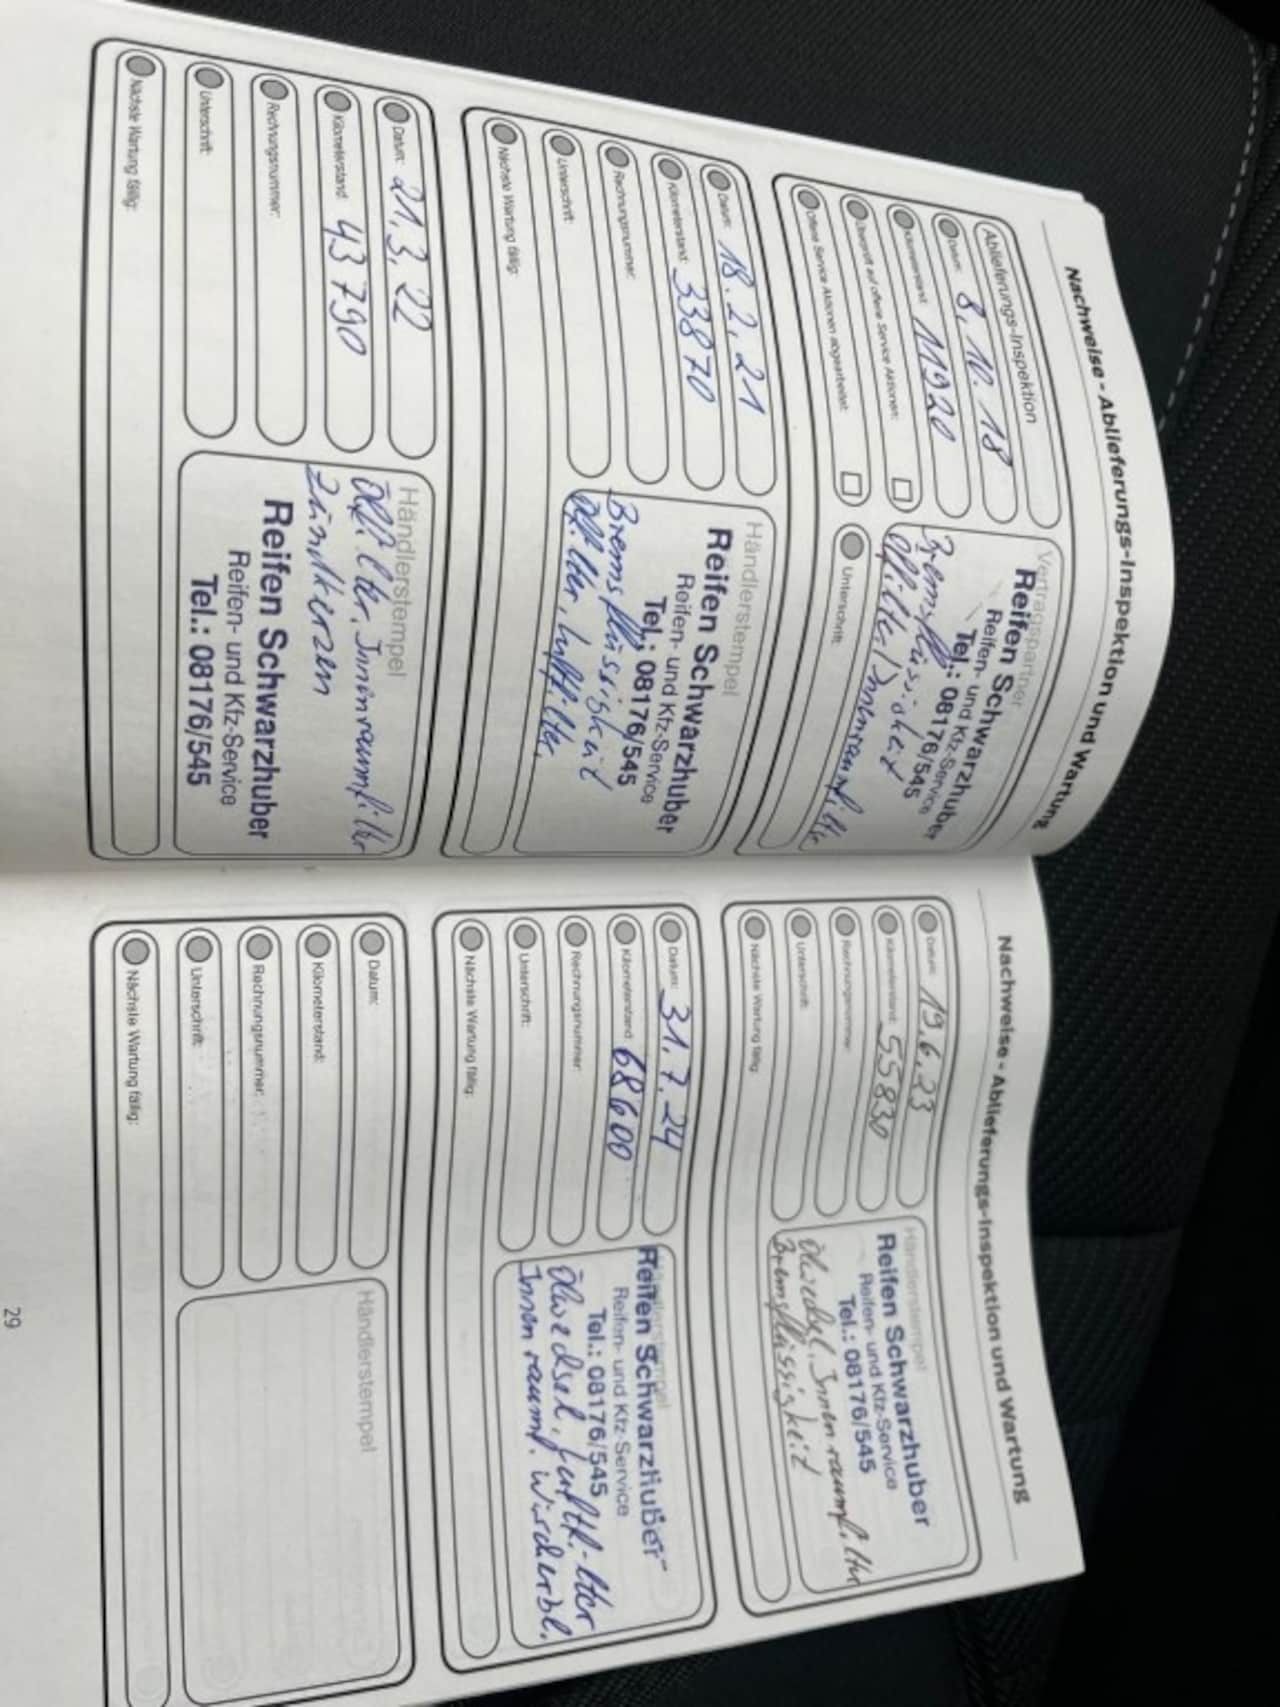 Nachweise - Ablieferungs-Inspektion und Wartung
Ablieferungs-Inspektion
Datum: 8.10.18
Kilometerstand: 11920
Überprüft auf offene Service Aktionen:
Offene Service Aktionen abgearbeitet:
Vertragspartner
Reifen Schwarzhuber
Reifen- und Kfz-Service
Tel.: 08176/545
Bremsflüssigkeit
Ölfilter, Innenraumfilter
Unterschrift:
Datum: 18.2.21
Kilometerstand: 33870
Rechnungsnummer:
Unterschrift:
Nächste Wartung fällig:
Händlerstempel
Reifen Schwarzhuber
Reifen- und Kfz-Service
Tel.: 08176/545
Bremsflüssigkeit
Ölfilter, Luftfilter,
Datum: 21.3.22
Kilometerstand: 43790
Rechnungsnummer:
Unterschrift:
Nächste Wartung fällig:
Händlerstempel
Ölfilter, Innenraumfilter
Zündkerzen
Reifen Schwarzhuber
Reifen- und Kfz-Service
Tel.: 08176/545
Nachweise - Ablieferungs-Inspektion und Wartung
Datum: 19.6.23
Kilometerstand: 55830
Rechnungsnummer:
Unterschrift:
Nächste Wartung fällig:
Händlerstempel
Reifen Schwarzhuber
Reifen- und Kfz-Service
Tel.: 08176/545
Ölwechsel, Innenraumfilter
Bremsflüssigkeit
Datum: 31.7.24
Kilometerstand: 68600
Rechnungsnummer:
Unterschrift:
Nächste Wartung fällig:
Händlerstempel
Reifen Schwarzhuber
Reifen- und Kfz-Service
Tel.: 08176/545
Ölwechsel, Luftfilter
Innenraumf. Wischerbl.
Datum:
Kilometerstand:
Rechnungsnummer:
Unterschrift:
Nächste Wartung fällig:
Händlerstempel
29